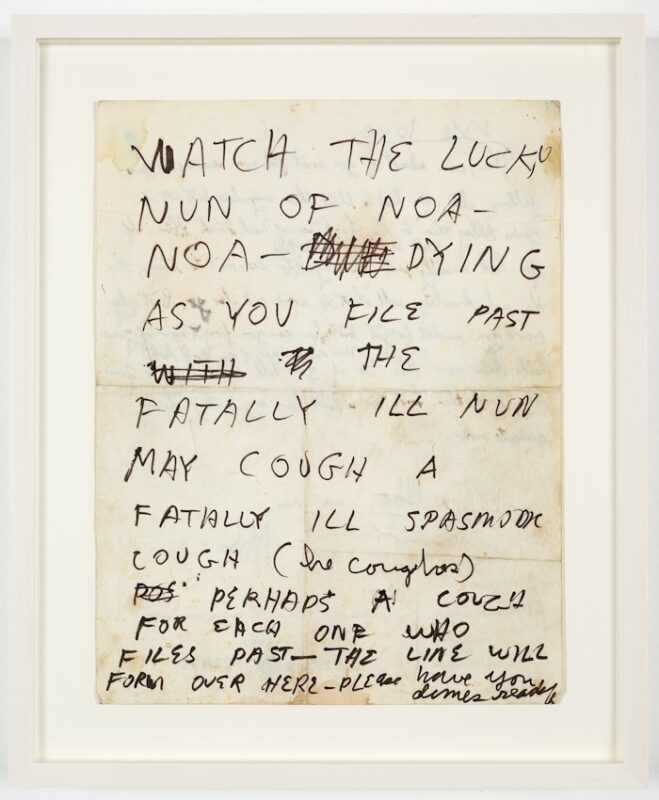 WATCH THE LUCKY
NUN OF NOA-
NOA- DYING
AS YOU FILE PAST
WITH THE
FATALLY ILL NUN
MAY COUGH A
FATALLY ILL SPASMODIC
COUGH (he coughs)
POS PERHAPS A COUGH
FOR EACH ONE WHO
FILES PAST- THE LINE WILL
FORM OVER HERE-PLEase have you
dimes ready